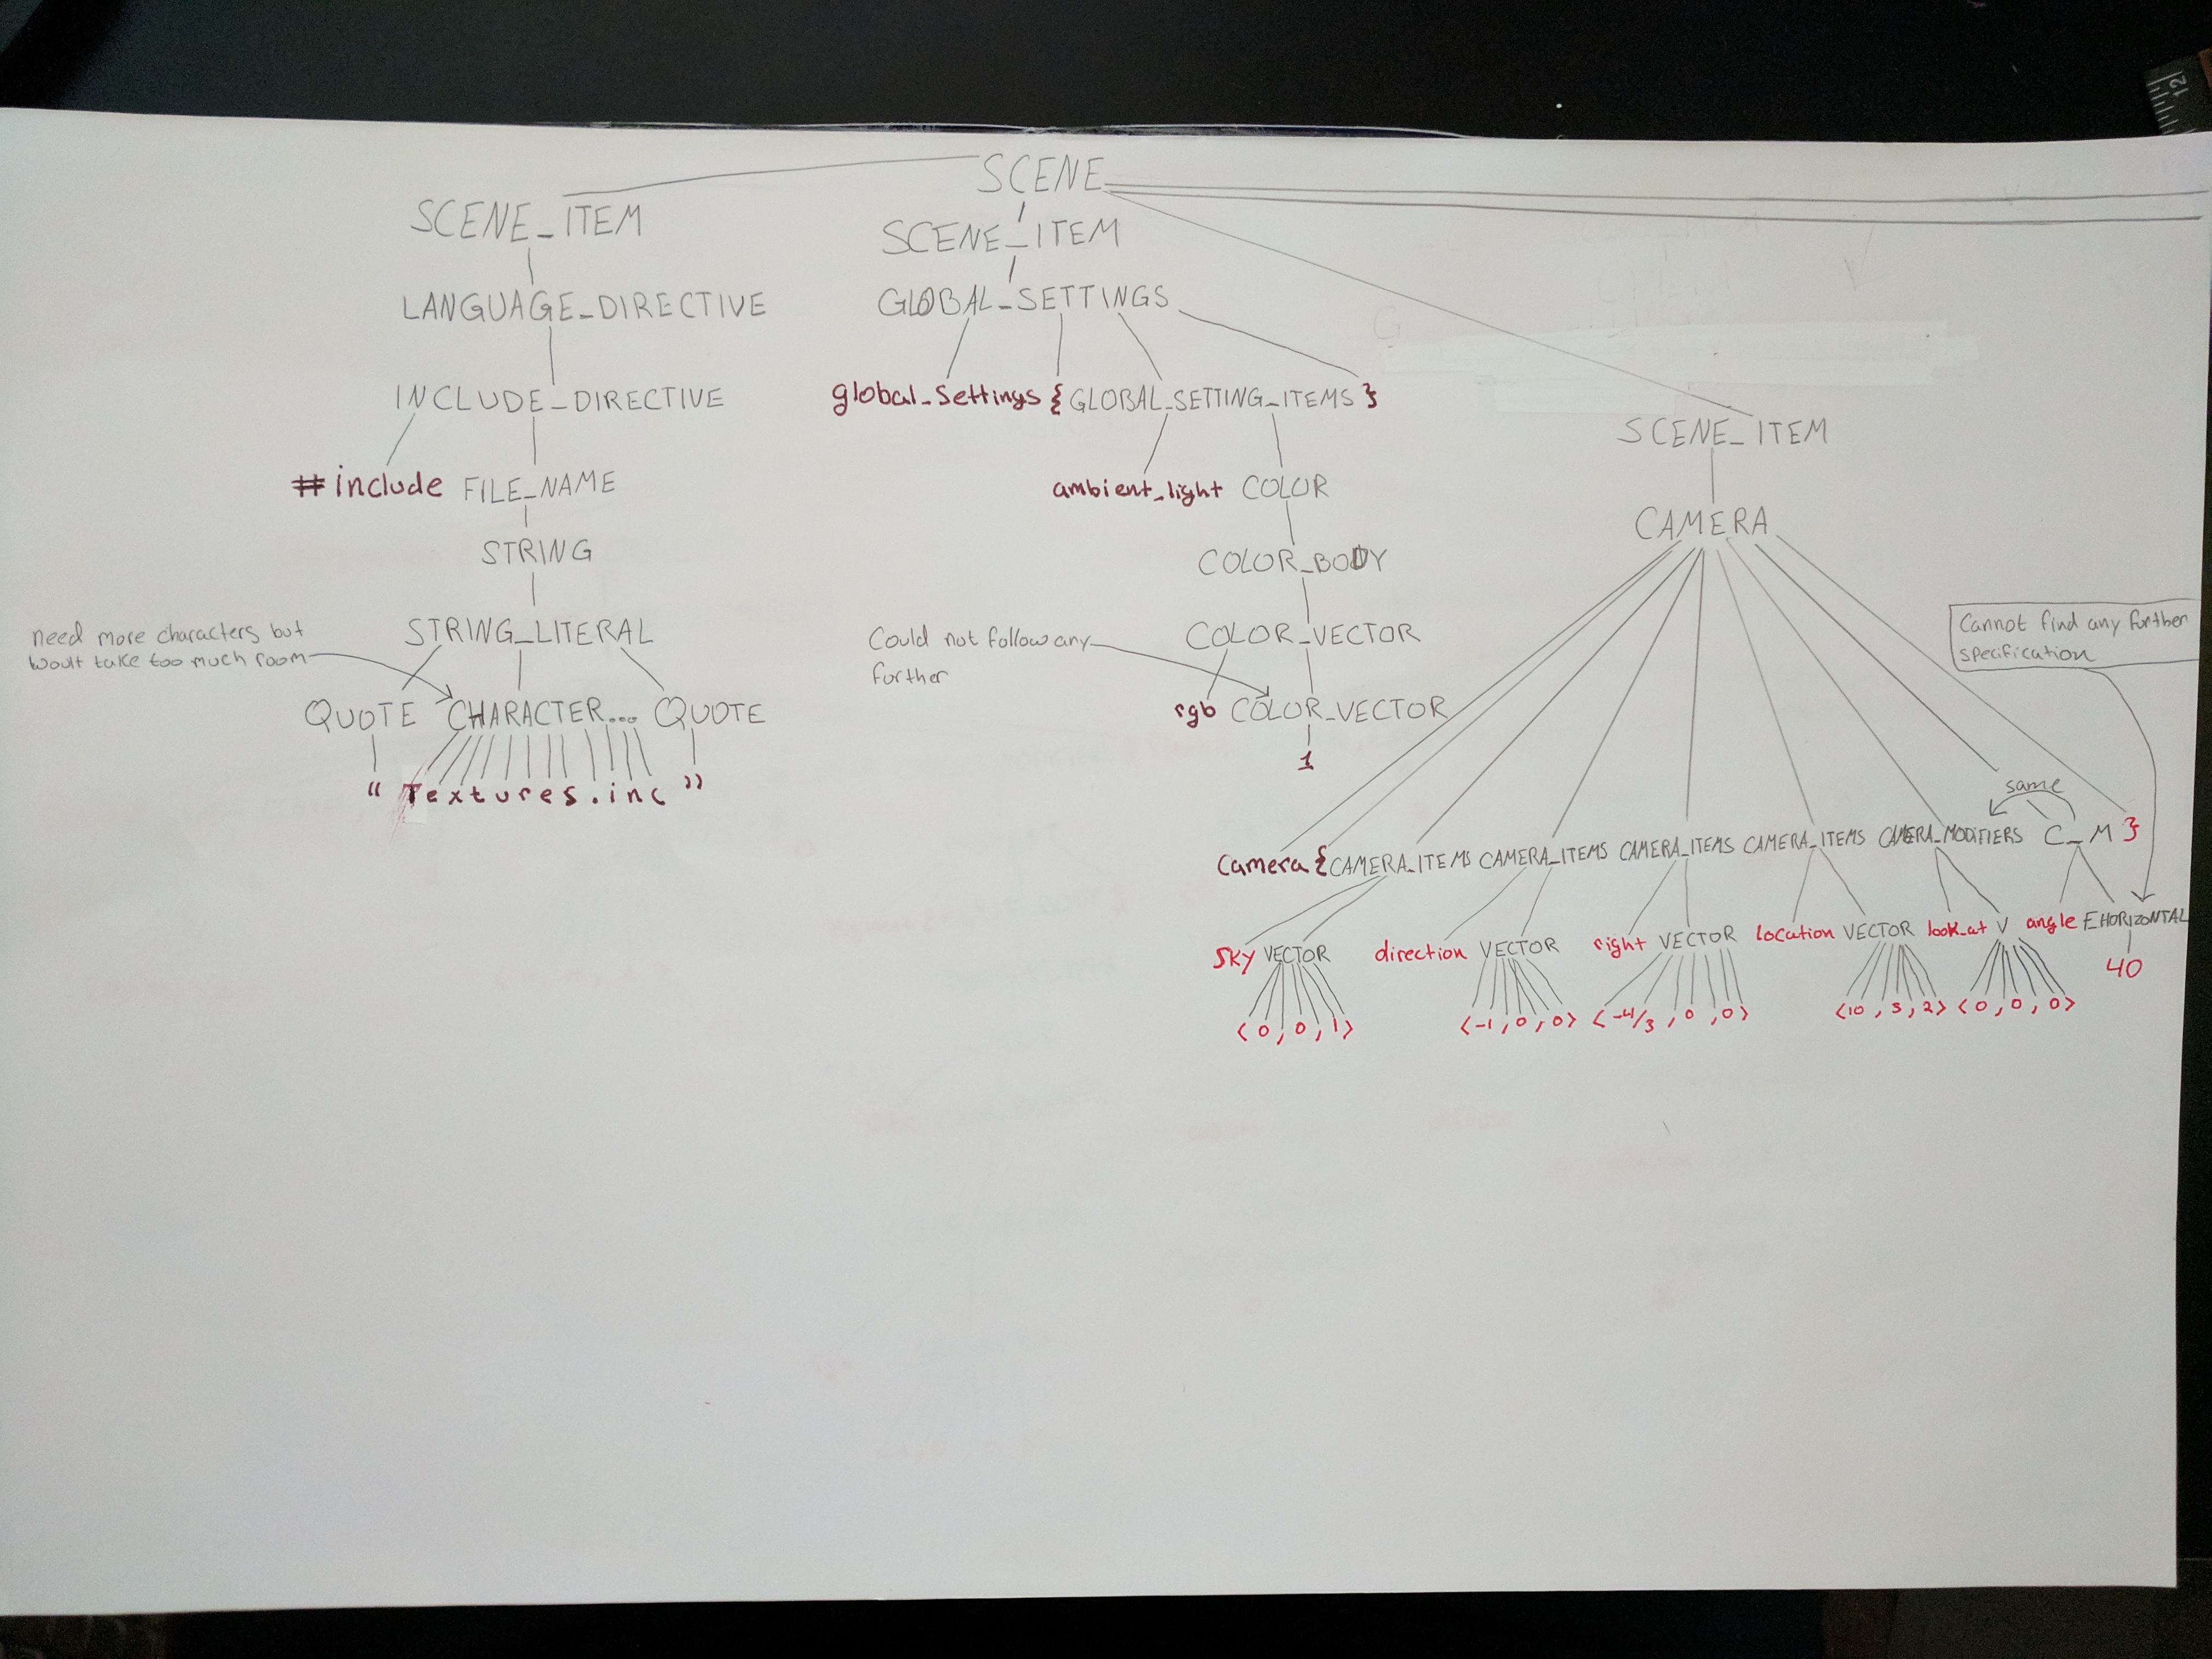 12
SCENE
SCENE_ITEM
LANGUAGE_DIRECTIVE
INCLUDE_DIRECTIVE
#include FILE_NAME
STRING
need more characters but
woult take too much room
STRING_LITERAL
QUOTE CHARACTER... QUOTE
“ Textures.inc ”
SCENE_ITEM
GLOBAL_SETTINGS
global_Settings { GLOBAL_SETTING_ITEMS }
ambient_light COLOR
COLOR_BODY
Could not follow any
further
COLOR_VECTOR
rgb COLOR_VECTOR
1
SCENE_ITEM
CAMERA
Cannot find any further
specification
same
Camera { CAMERA_ITEMS CAMERA_ITEMS CAMERA_ITEMS CAMERA_ITEMS CAMERA_MODIFIERS C_M }
sky VECTOR direction VECTOR right VECTOR location VECTOR look_at V angle EHORIZONTAL
<0, 0, 1> <-1, 0, 0> <-4/3, 0, 0> <10, 3, 2> <0, 0, 0> 40